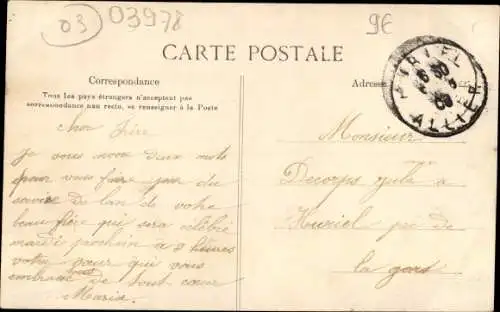 03 03978
9€
CARTE POSTALE
Correspondance
Tous les pays étrangers n'acceptent pas
correspondance au recto, se renseigner à la Poste
Adresse
HURIEL
ALLIER
Cher frère
Je vous deux mots
pour vous faire du
de de votre
beau frère qui sera célébré
mardi prochain à 8 heures
votre sœur qui vous
embrasse tous de tout cœur
Maria
Monsieur
Decorps jule a
Huriel pré de
la gare